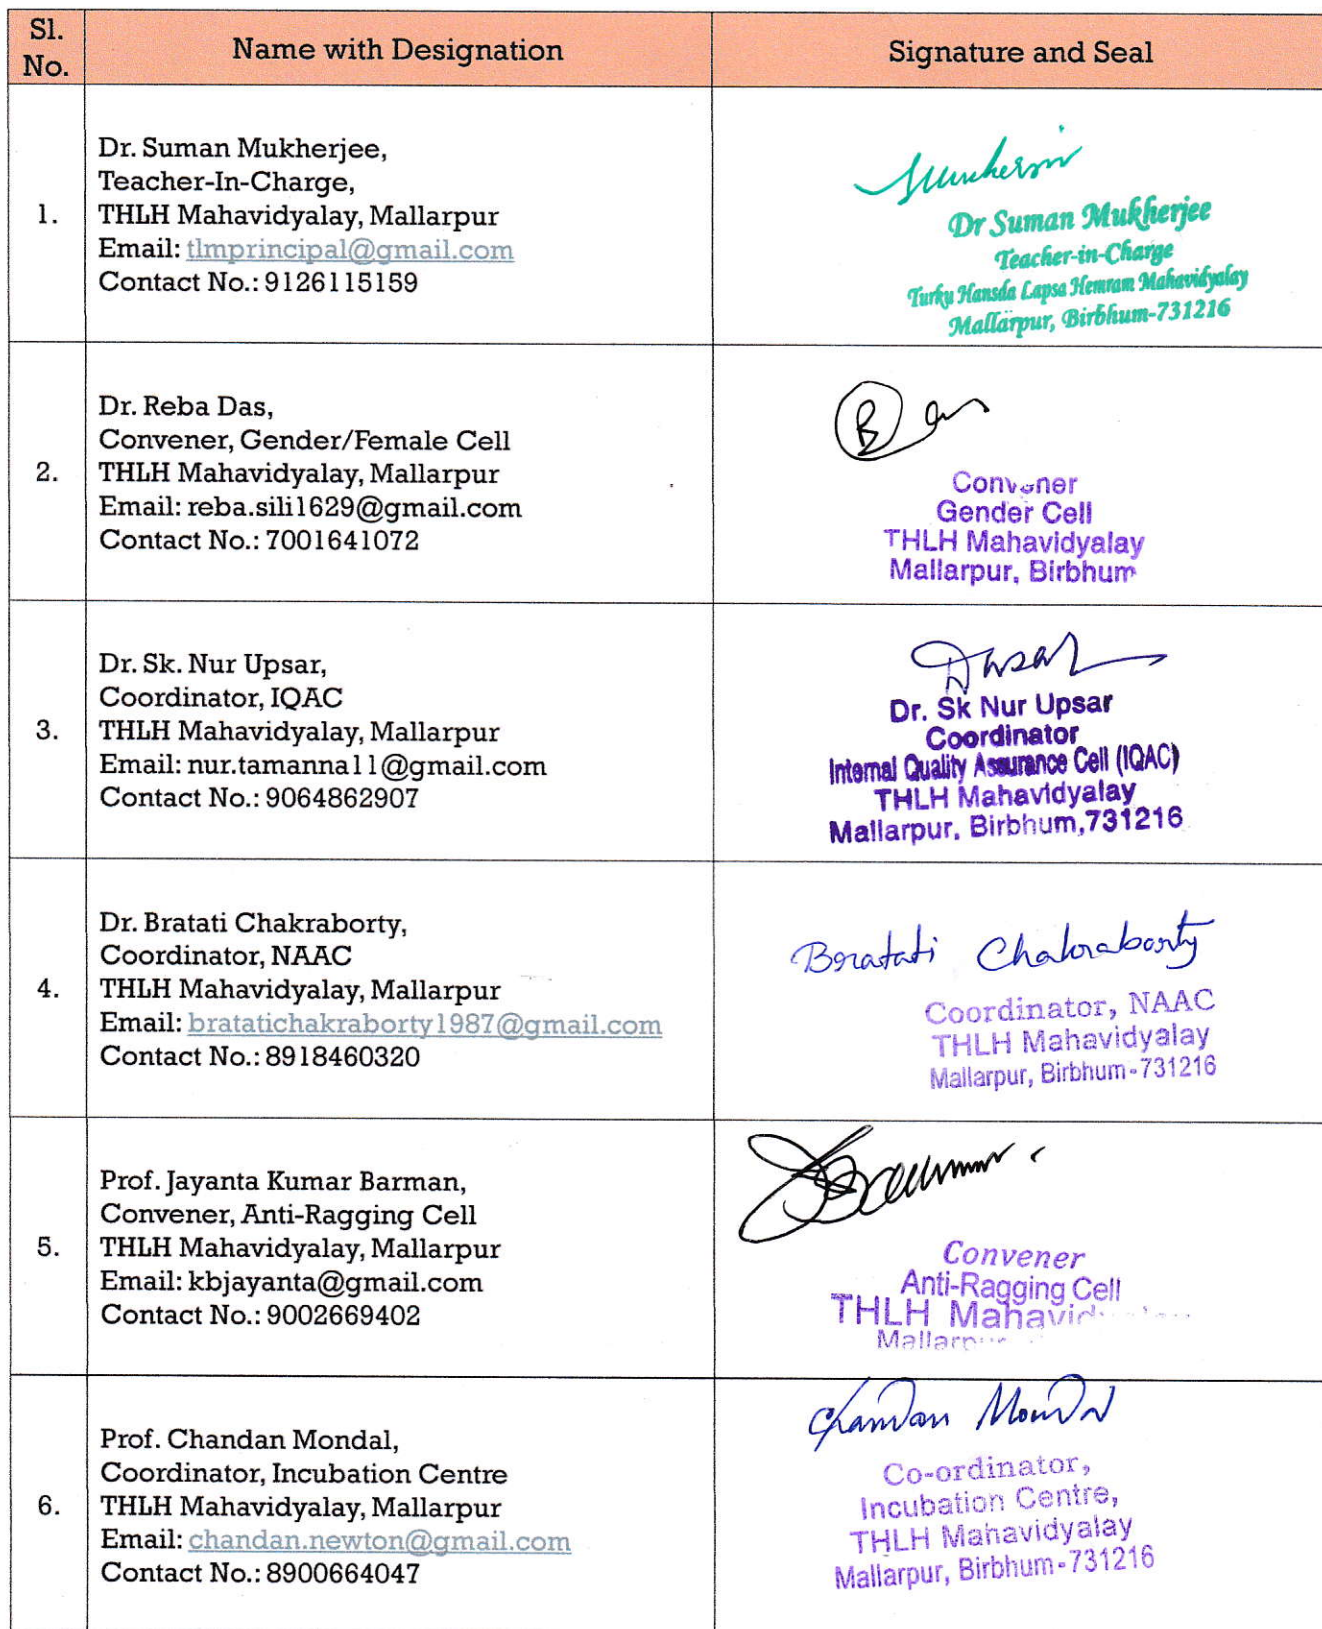 Sl.
No.
Name with Designation
Signature and Seal
1.
Dr. Suman Mukherjee,
Teacher-In-Charge,
THLH Mahavidyalay, Mallarpur
Email: tlmprincipal@gmail.com
Contact No.: 9126115159
Dr Suman Mukherjee
Teacher-in-Charge
Turku Hansda Lapsa Hemram Mahavidyalay
Mallarpur, Birbhum-731216
2.
Dr. Reba Das,
Convener, Gender/Female Cell
THLH Mahavidyalay, Mallarpur
Email: reba.sili1629@gmail.com
Contact No.: 7001641072
Convener
Gender Cell
THLH Mahavidyalay
Mallarpur, Birbhum
3.
Dr. Sk. Nur Upsar,
Coordinator, IQAC
THLH Mahavidyalay, Mallarpur
Email: nur.tamanna11@gmail.com
Contact No.: 9064862907
Dr. Sk Nur Upsar
Coordinator
Internal Quality Assurance Cell (IQAC)
THLH Mahavidyalay
Mallarpur, Birbhum,731216
4.
Dr. Bratati Chakraborty,
Coordinator, NAAC
THLH Mahavidyalay, Mallarpur
Email: bratatichakraborty1987@gmail.com
Contact No.: 8918460320
Bratati Chakraborty
Coordinator, NAAC
THLH Mahavidyalay
Mallarpur, Birbhum-731216
5.
Prof. Jayanta Kumar Barman,
Convener, Anti-Ragging Cell
THLH Mahavidyalay, Mallarpur
Email: kbjayanta@gmail.com
Contact No.: 9002669402
Convener
Anti-Ragging Cell
THLH
6.
Prof. Chandan Mondal,
Coordinator, Incubation Centre
THLH Mahavidyalay, Mallarpur
Email: chandan.newton@gmail.com
Contact No.: 8900664047
Chandan Mondal
Co-ordinator,
Incubation Centre,
THLH Mahavidyalay
Mallarpur, Birbhum-731216